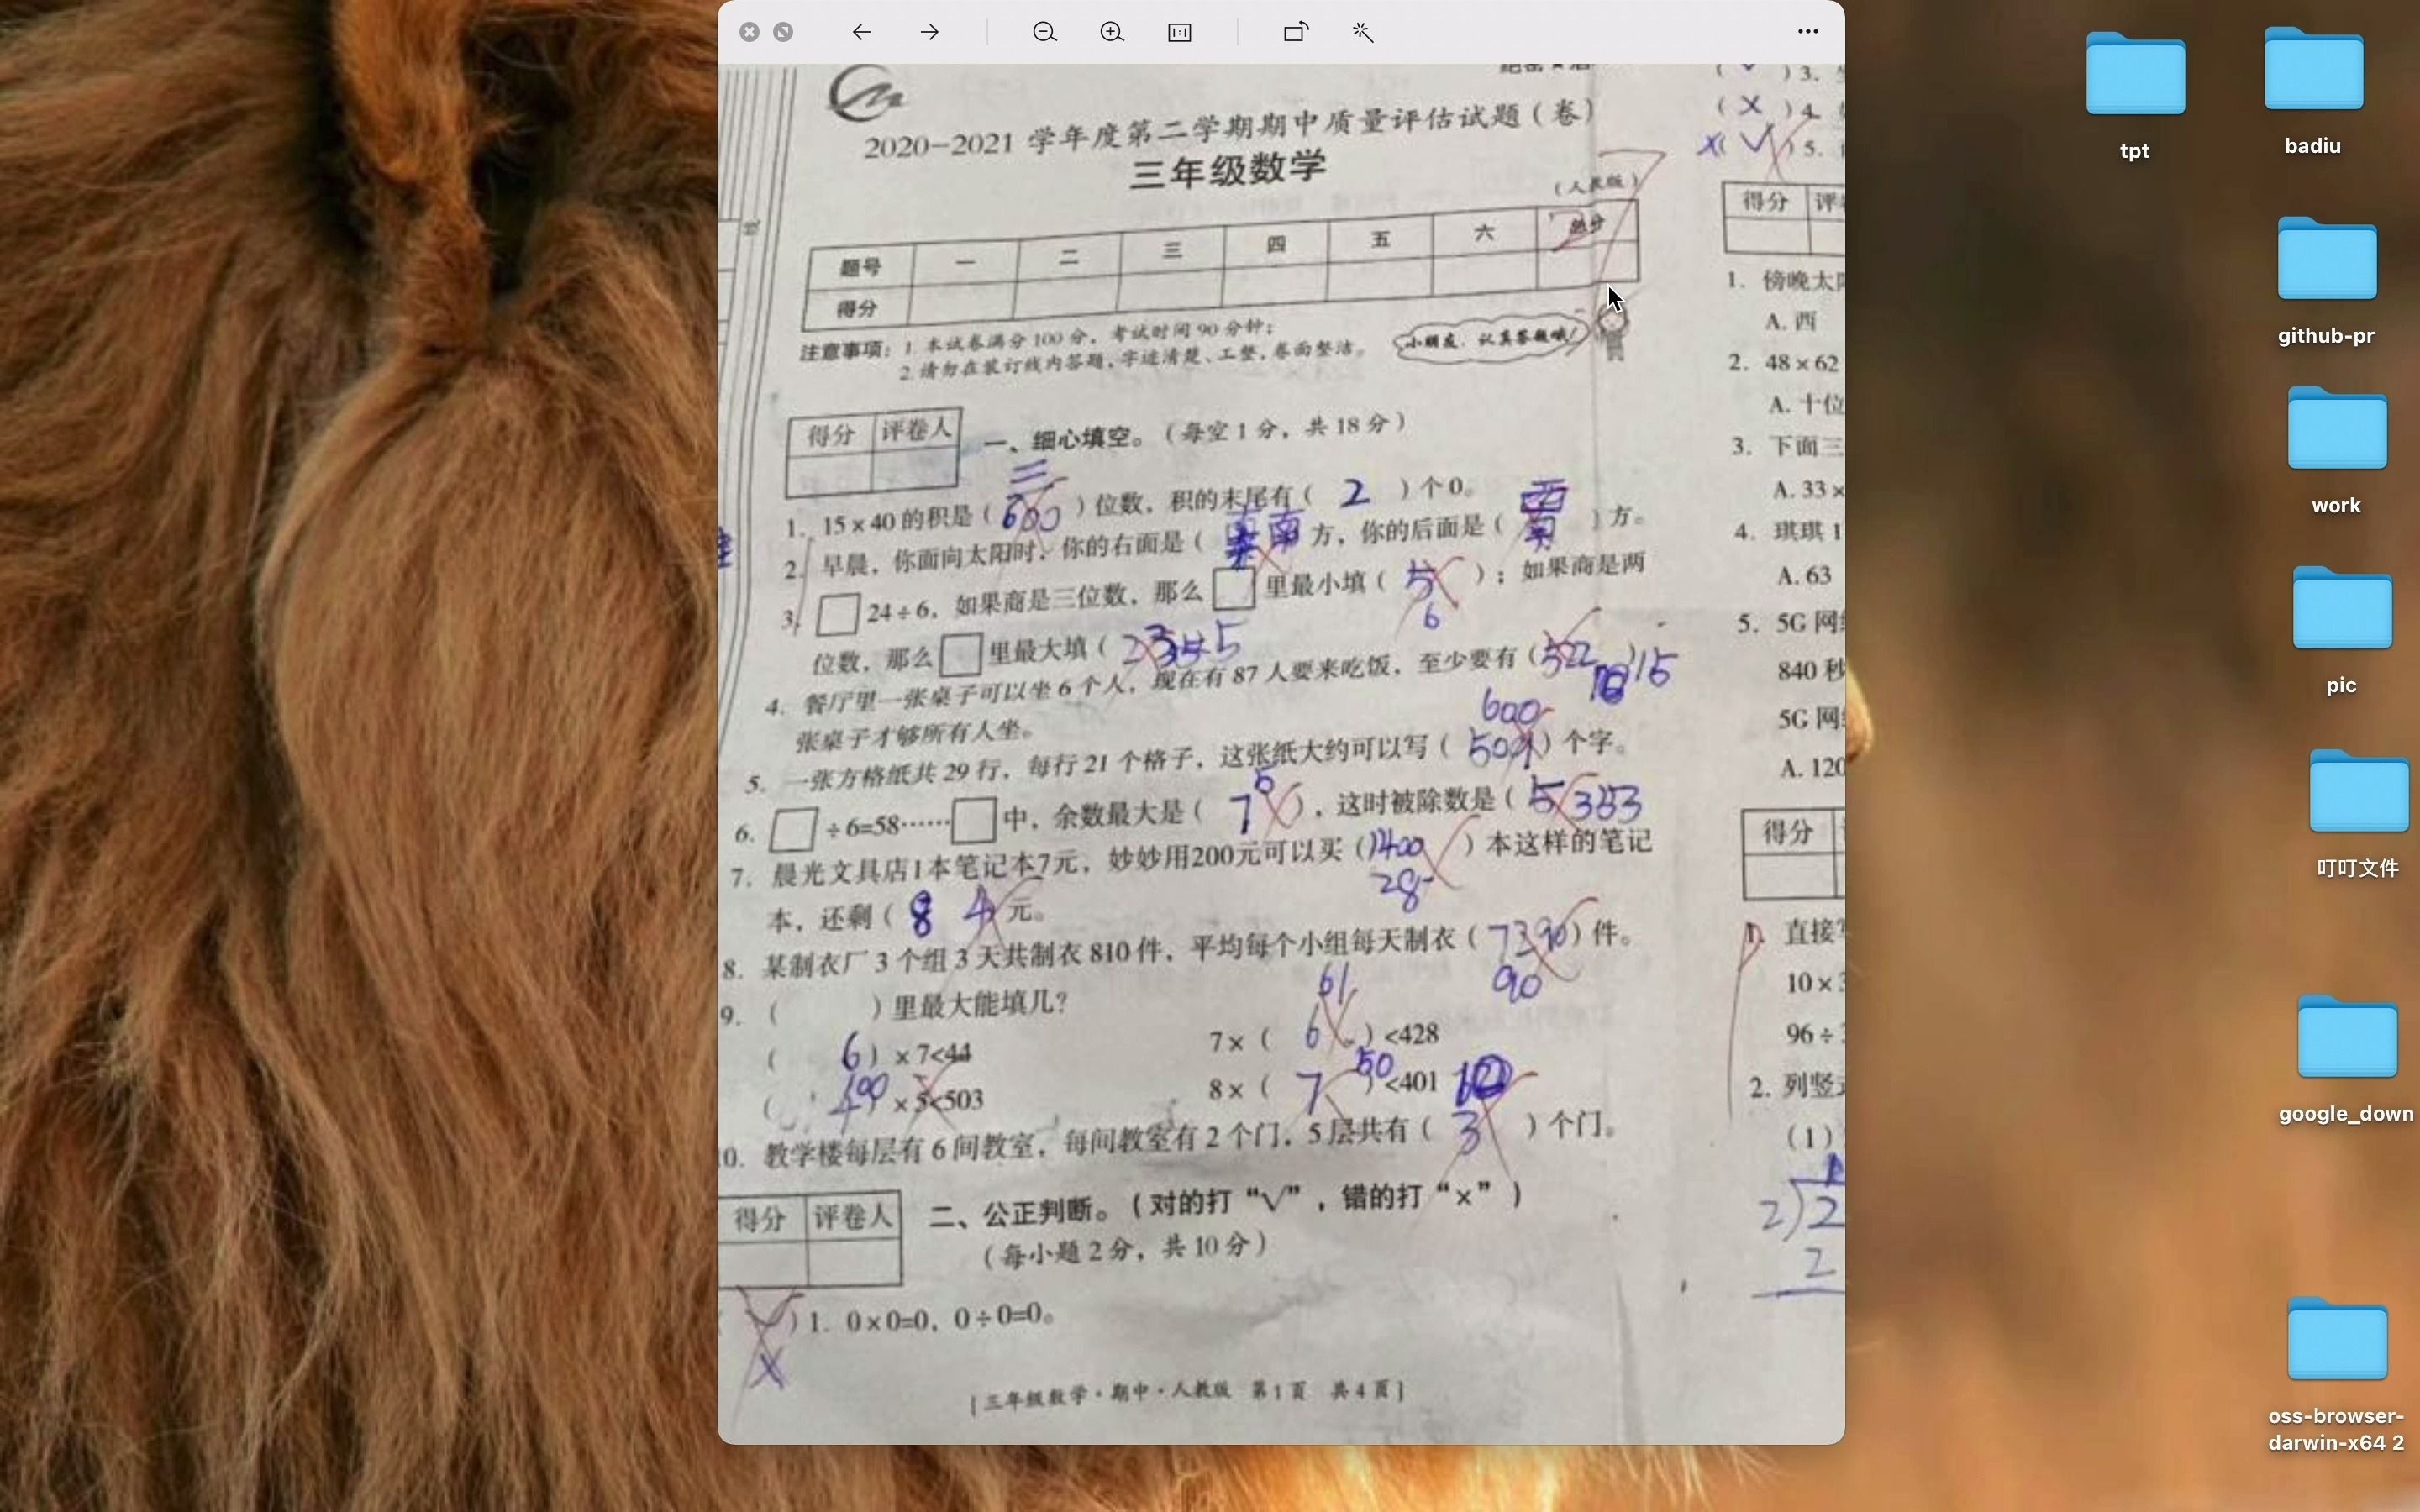 2020-2021 学年度第二学期期中质量评估试题（卷）
三年级数学
（人教版）
题号 一 二 三 四 五 六 总分
得分
注意事项：1. 本试卷满分 100 分，考试时间 90 分钟；
2. 请勿在装订线内答题，字迹清楚、工整，卷面整洁。
小朋友，认真答题哦！
得分 评卷人
一、细心填空。（每空 1 分，共 18 分）
三
1. 15×40 的积是（ 600 ）位数，积的末尾有（ 2 ）个 0。
西
2. 早晨，你面向太阳时，你的右面是（ 南 方，你的后面是（ ）方。
3. □24÷6，如果商是三位数，那么□里最小填（ 5 ）；如果商是两
6
位数，那么□里最大填（ 5
4. 餐厅里一张桌子可以坐 6 个人，现在有 87 人要来吃饭，至少要有（522）15
张桌子才够所有人坐。
600
5. 一张方格纸共 29 行，每行 21 个格子，这张纸大约可以写（ ）个字。
5
6. □÷6=58……□中，余数最大是（ 7 ），这时被除数是（ 353
7. 晨光文具店1本笔记本7元，妙妙用200元可以买（1400 ）本这样的笔记
28
本，还剩（ 8 4 元。
8. 某制衣厂 3 个组 3 天共制衣 810 件，平均每个小组每天制衣（ ）件。
90
9. （ ）里最大能填几？
61
（ 6）×7<44
7×（ 6 ）<428
100
50
（ 4）×5<503
8×（ 7 ）<401
10. 教学楼每层有 6 间教室，每间教室有 2 个门，5 层共有（ 3 ）个门。
得分 评卷人
二、公正判断。（对的打“√”，错的打“×”）
（每小题 2 分，共 10 分）
（ √ ）1. 0×0=0，0÷0=0。
×
[三年级数学·期中·人教版 第 1 页 共 4 页]
（ √ ）3.
（ × ）4.
×（ √ ）5.
得分
1. 傍晚太
A. 西
2. 48×62
A. 十位
3. 下面三
A. 33×
4. 琪琪 1
A. 63
5. 5G 网
840 秒
5G 网
A. 120
得分
1. 直接
10×
96÷
2. 列竖
（1）
2)2
2
tpt
badiu
github-pr
work
pic
叮叮文件
google_down
oss-browser-
darwin-x64 2